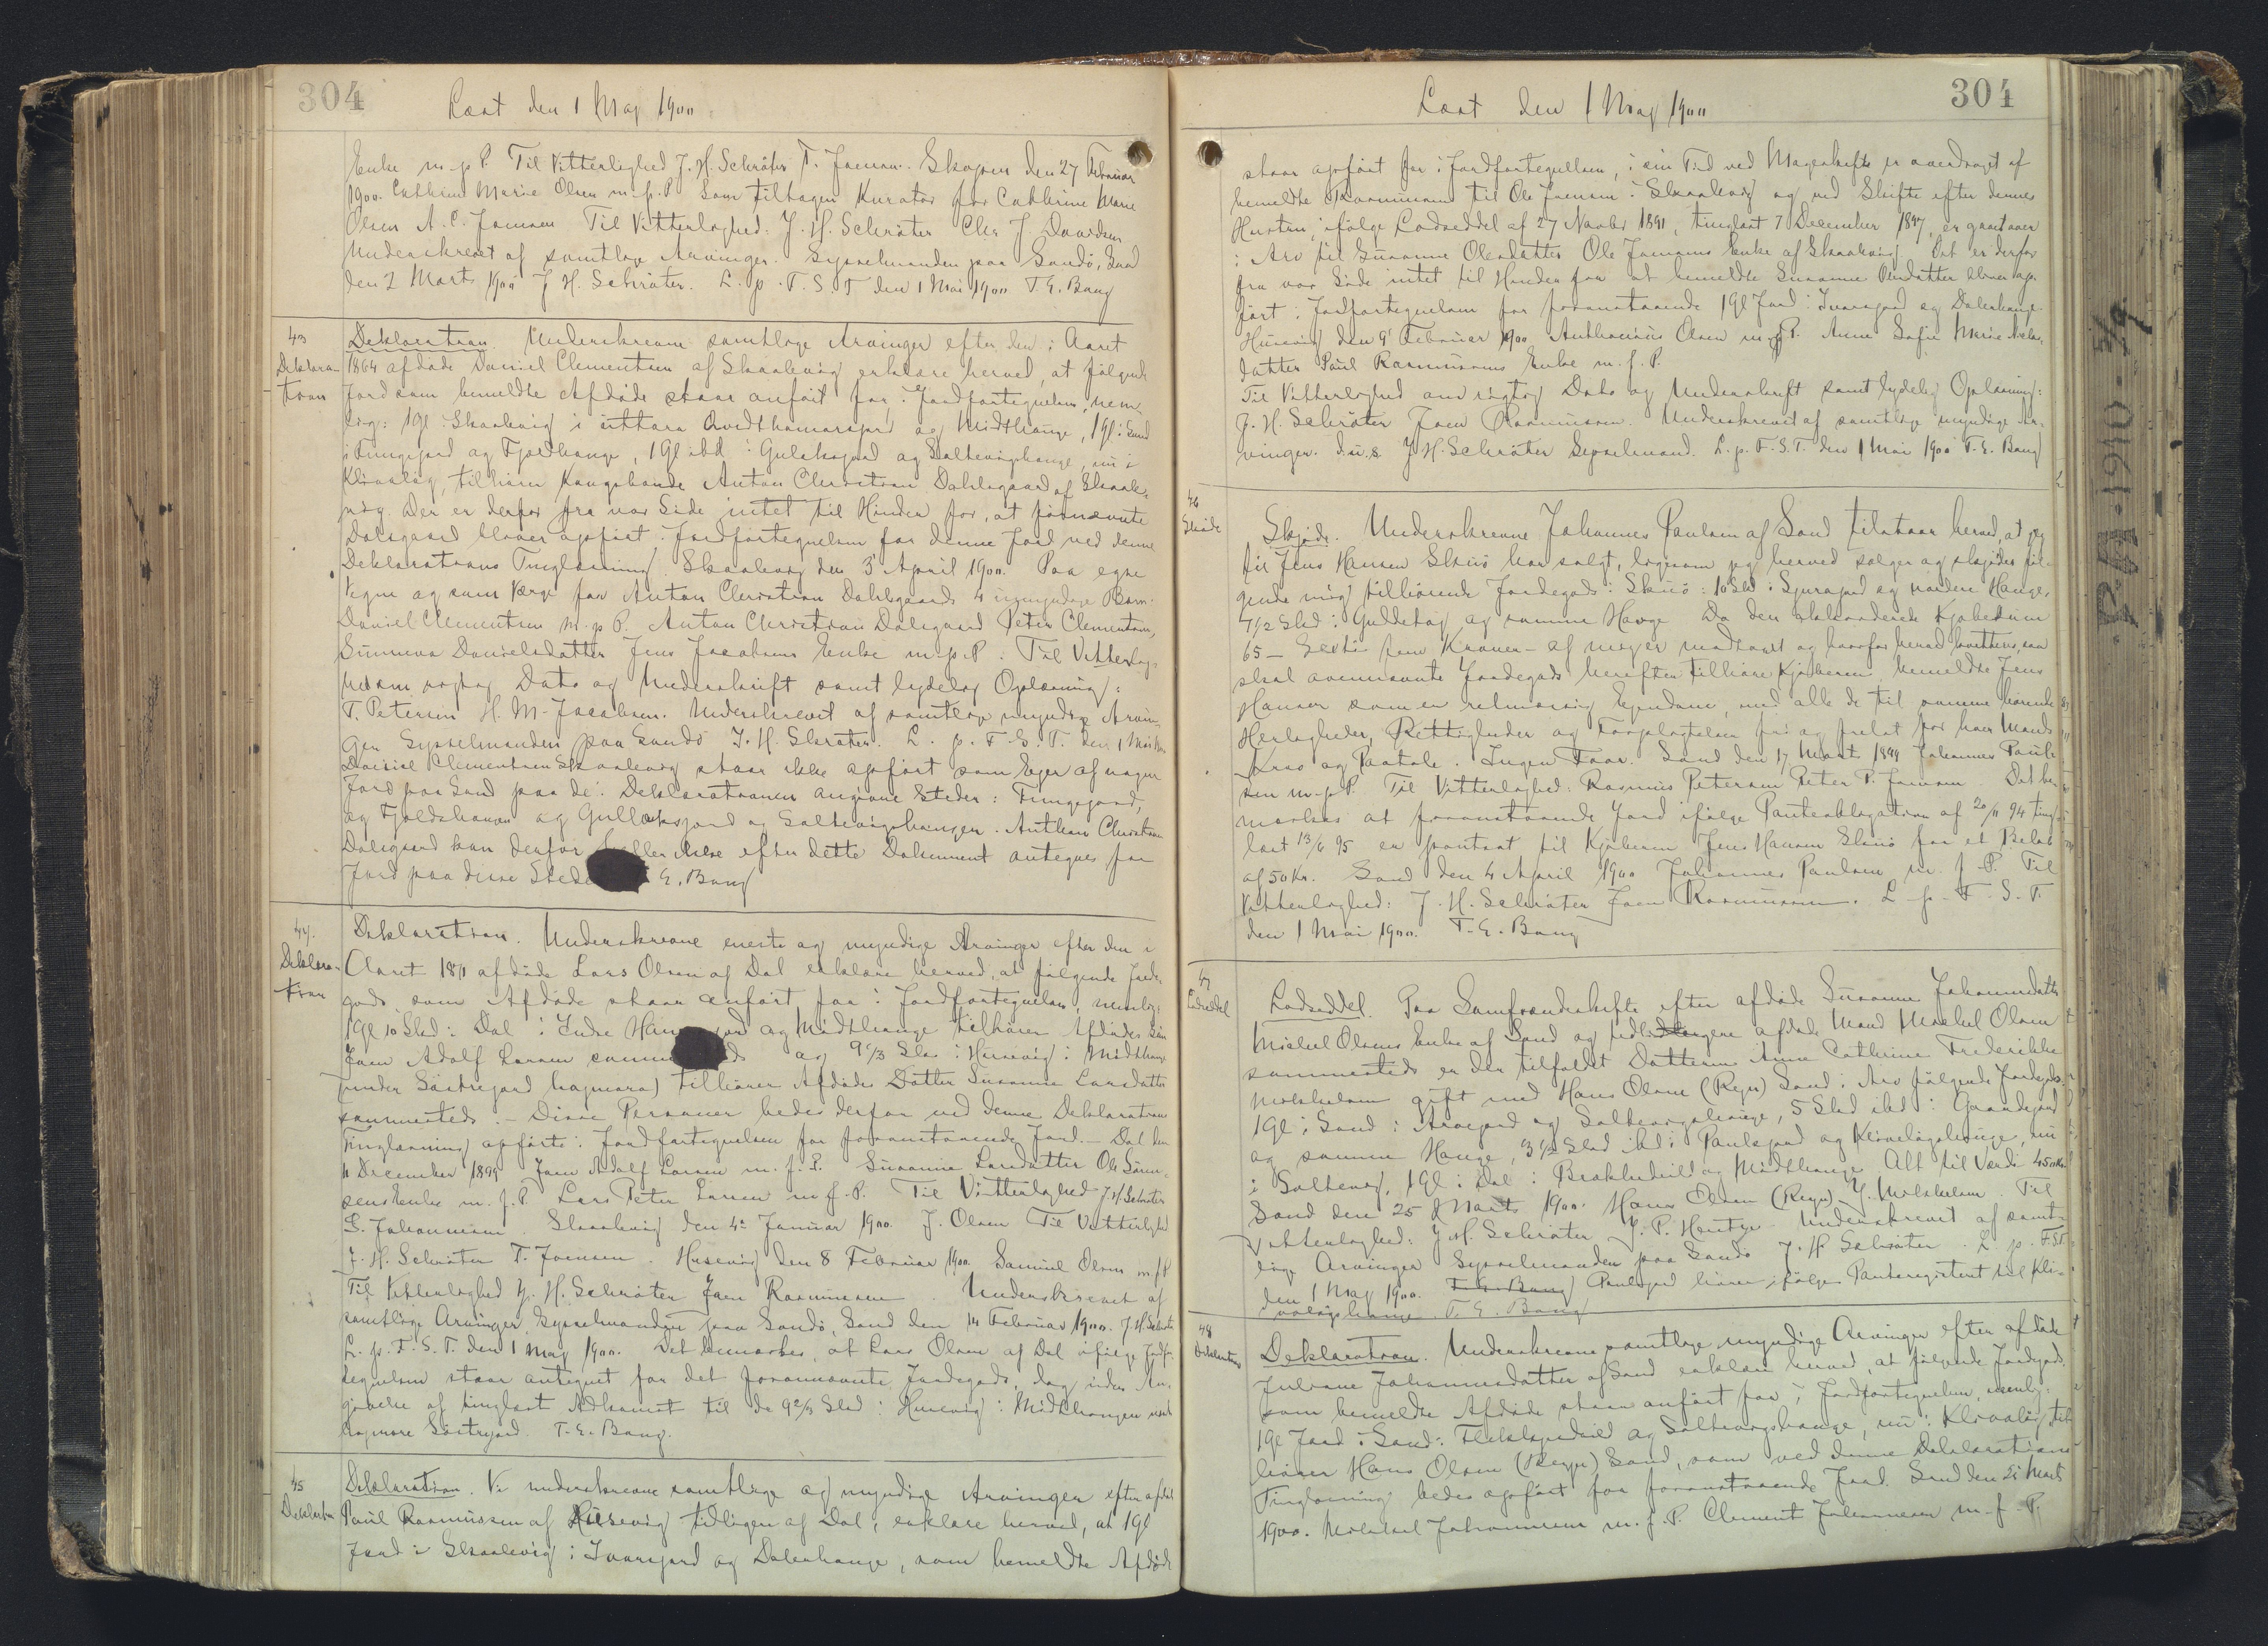 304
Læst den 1 Maj 1900
Enke m.f.P. Til Vitterlighed J. H. Schröter T. Joensen. Skopen den 27 Februar
1900. Cathrine Marie Olsen m.f.P. Som tiltagen Kurator for Cathrine Marie
Olsen A. C. Joensen Til Vitterlighed: J. H. Schröter Chr. J. Davidsen
Underskrevet af samtlige Arvinger. Sysselmanden paa Sandö, Sand
den 2 Marts 1900 J H. Schröter. L. p. F. S. T. den 1 Mai 1900 T. E. Bang
43
Deklara-
tion
Deklaration. Underskrevne samtlige Arvinger efter den i Aaret
1864 afdöde Daniel Clementsen af Skaalevig erklære herved, at fölgende
Jord som bemeldte Afdöde staar anfört for i Jordfortegnelsen, nem-
lig: 1 Gl i Skaalevig i uttara Qvedthamarsjord og Midthauge, 1 Gl i Sand
i Tungejord og Fjoldhauge, 1 Gl ibd i Gulaksjord og Saltevigshauge, nu i
Klivalög, tilhörer Kongsbonde Anton Christian Dahlsgaard af Skaale-
vig. Der er derfor fra vor Side intet til Hinder for, at fornævnte
Dalsgaard bliver opfört i Jordfortegnelsen for denne Jord ved denne
Deklarations Tinglæsning. Skaalevig den 3 April 1900. Paa egne
Vegne og som Værge for Anton Christian Dahlsgaards 4 umyndige Börn
Daniel Clementsen m.f.P. Anton Christian Dalsgaard Peter Clementsen,
Sunneva Danielsdatter Jens Jacobsens Enke m.f.P. Til Vitterlig-
hed om rigtig Dato og Underskrift samt lydelig Oplæsning:
T. Petersen H. M. Jacobsen. Underskrevet af samtlige myndige Arvin-
ger Sysselmanden paa Sandö J. H. Schröter. L. p. F. S. T. den 1 Mai 1900
Daniel Clementsen Skaalevig staar ikke opfört som Ejer af nogen
Jord paa Sand paa de i Deklarationen angivne Steder: Tungejord,
og Fjoldshauen og Gullaksjord og Saltevigshaugen. Anthon Christian
Dalsgaard kan derfor heller ikke efter dette Dokument antegnes for
Jord paa disse Stede E. Bang
44.
Deklara-
tion
Deklaration. Underskrevne eneste og myndige Arvinger efter den i
Aaret 1871 afdöde Lars Olsen af Dal erklære herved, at fölgende Jorde-
gods, som Afdöde staar anfört for i Jordfortegnelsen, nemlig:
1 Gl 10 Skd i Dal i Indre Hau jord og Midthauge tilhörer Afdödes Sön
Joen Adolf Larsen samme ds og 9 2/3 Skd i Husevig i Midthauge
(under Söitregard hagmora) tilhörer Afdödes Datter Susanne Larsdatter
sammesteds. - Disse Personer bedes derfor ved denne Deklarations
Tinglæsning opförte i Jordfortegnelsen for foranstaaende Jord. - Dal den
11 December 1899 Joen Adolf Larsen m.f.P. Susanne Larsdatter Ole Sören-
sens Enke m.f.P. Lars Peter Larsen m.f.P. Til Vitterlighed J. H. Schröter
S. Johannesen. Skaalevig den 4de Januar 1900. J. Olsen Til Vitterlighed
J. H. Schröter T. Joensen. Husevig den 8 Februar 1900. Samuel Olsen m.f.P.
Til Vitterlighed J. H. Schröter Joen Rasmussen. Underskrevet af
samtlige Arvinger, Sysselmanden paa Sandö, Sand den 14 Februar 1900. J. H. Schröter
L. p. F. S. T. den 1 Maj 1900. Det bemærkes, at Lars Olsen af Dal ifölge Jordfor-
tegnelsen staar antegnet for det forannævnte Jordegods, dog uden An-
givelse af tinglæst Adkomst til de 9 2/3 Skd i Husevig i Midthaugen med
hagmore Söitregard. T. E. Bang.
45
Deklaration
Deklaration. Vi underskrevne samtlige og myndige Arvinger efter afdöde
Paul Rasmussen af Husevig tidligere af Dal, erklære herved, at 1 Gl
Jord i Skaalevig i Ivarsjord og Dalenhauge, som bemeldte Afdöde
304
Læst den 1 Maj 1900
staar opfört for i Jordfortegnelsen, i sin Tid ved Mageskifte er overdraget af
bemeldte Rasmussen til Ole Joensen i Skaalevig og ved Skifte efter dennes
Hustru, ifölge Lodseddel af 27 Novbr 1891, tinglæst 7 December 1897, er gaaet over
i Arv til Susanne Olesdatter Ole Joensens Enke af Skaalevig. Det er derfor
fra vor Side intet til Hinder for at bemeldte Susanne Olesdatter bliver op-
fört i Jordfortegnelsen for foranstaaende 1 Gl Jord i Ivarsjord og Dalenhauge.
Husevig den 9 Februar 1900 Anthonius Olsen m.f.P. Anne Sofie Marie Niels-
datter Paul Rasmussens Enke m.f.P.
Til Vitterlighed om rigtig Dato og Underskrift samt lydelig Oplæsning:
J. H. Schröter Joen Rasmussen. Underskrevet af samtlige myndige Ar-
vinger. d.u.s. J H. Schröter Sysselmand. L. p. F. S. T. den 1 Mai 1900 T. E. Bang
46
Sköde
Sköde. Underskrevne Johannes Paulsen af Sand tilstaar herved, at jeg
til Jens Hansen Skuö har solgt, ligesom jeg herved sælger og skjöder föl-
gende mig tilhörende Jordegods i Skuö: 10 Skd i Sjurajord og nordere Hauge,
7 1/2 Skd i Guldehaj og samme Hauge Da den akkorderede Kjöbesum
65 - Sexti fem Kroner - af mig er modtaget og hvorfor herved kvitteres, saa
skal ovennævnte Jordegods herefter tilhöre Kjöberen bemeldte Jens
Hansen som en retmæssig Ejendom, med alle de til samme hörende
Herligheder, Rettigheder og Forpligtelser fri og frelst for hver Mands
Krav og Paatale. Ingen Faar. Sand den 17 Marts 1899 Johannes Paul-
sen m.f.P. Til Vitterlighed: Rasmus Petersen Peter P. Joensen. Det be-
mærkes at foranstaaende Jord ifölge Panteobligation af 20/11 94 ting-
læst 13/6 95 er pantsat til Kjöberen Jens Hansen Skuö for et Belöb
af 50 Kr. Sand den 4 April 1900 Johannes Paulsen m.f.P. Til
Vitterlighed: J. H. Schröter Joen Rasmussen. L. p. F. S. T.
den 1 Mai 1900. T. E. Bang
47
Lodseddel
Lodseddel. Paa Samfrændeskifte efter afdöde Susanne Johannesdatter
Mickel Olsens Enke af Sand og afdöde Mand Mickel Olsen
sammesteds er der tilfaldet Datteren Anne Cathrine Frederikke
Mickelsen gift med Hans Olsen (Reyn) Sand i Arv fölgende Jordegods:
1 Gl i Sand i Arvejord og Saltevigshauge, 5 Skd ibd i Gaardejord
og samme Hauge, 3 1/2 Skd ibd i Paulsjord og Klivalögshauge, nu
i Saltevig, 1 Gl i Dal i Brekkudeild og Midthauge Alt til Værdi 450 Kr.
Sand den 25 Marts 1900. Hans Olsen (Reyn) J. Mickelsen. Til
Vitterlighed: J. H. Schröter J. P. Hentze. Underskrevet af samt-
lige Arvinger Sysselmanden paa Sandö J. H Schröter. L. p. F. S. T.
den 1 Maj 1900. T. E. Bang Paulsjord hörer ifölge Panteregistret til Kli-
valögshauge T. E. Bang
48
Deklaration
Deklaration. Underskrevne samtlige myndige Arvinger efter afdöde
Juliane Johannesdatter af Sand erklære herved, at fölgende Jordegods.
som bemeldte Afdöde staar anfört for i Jordfortegnelsen, nemlig:
1 Gl Jord i Sand i og Saltevigshauge, nu i Klivalög, til-
hörer Hans Olsen (Reyn) Sand, som ved denne Deklarations
Tinglæsning bedes opfört for foranstaaende Jord. Sand den 25 Marts
1900. Mickkel Johannesen m.f.P. Clement Johannesen m.f.P.